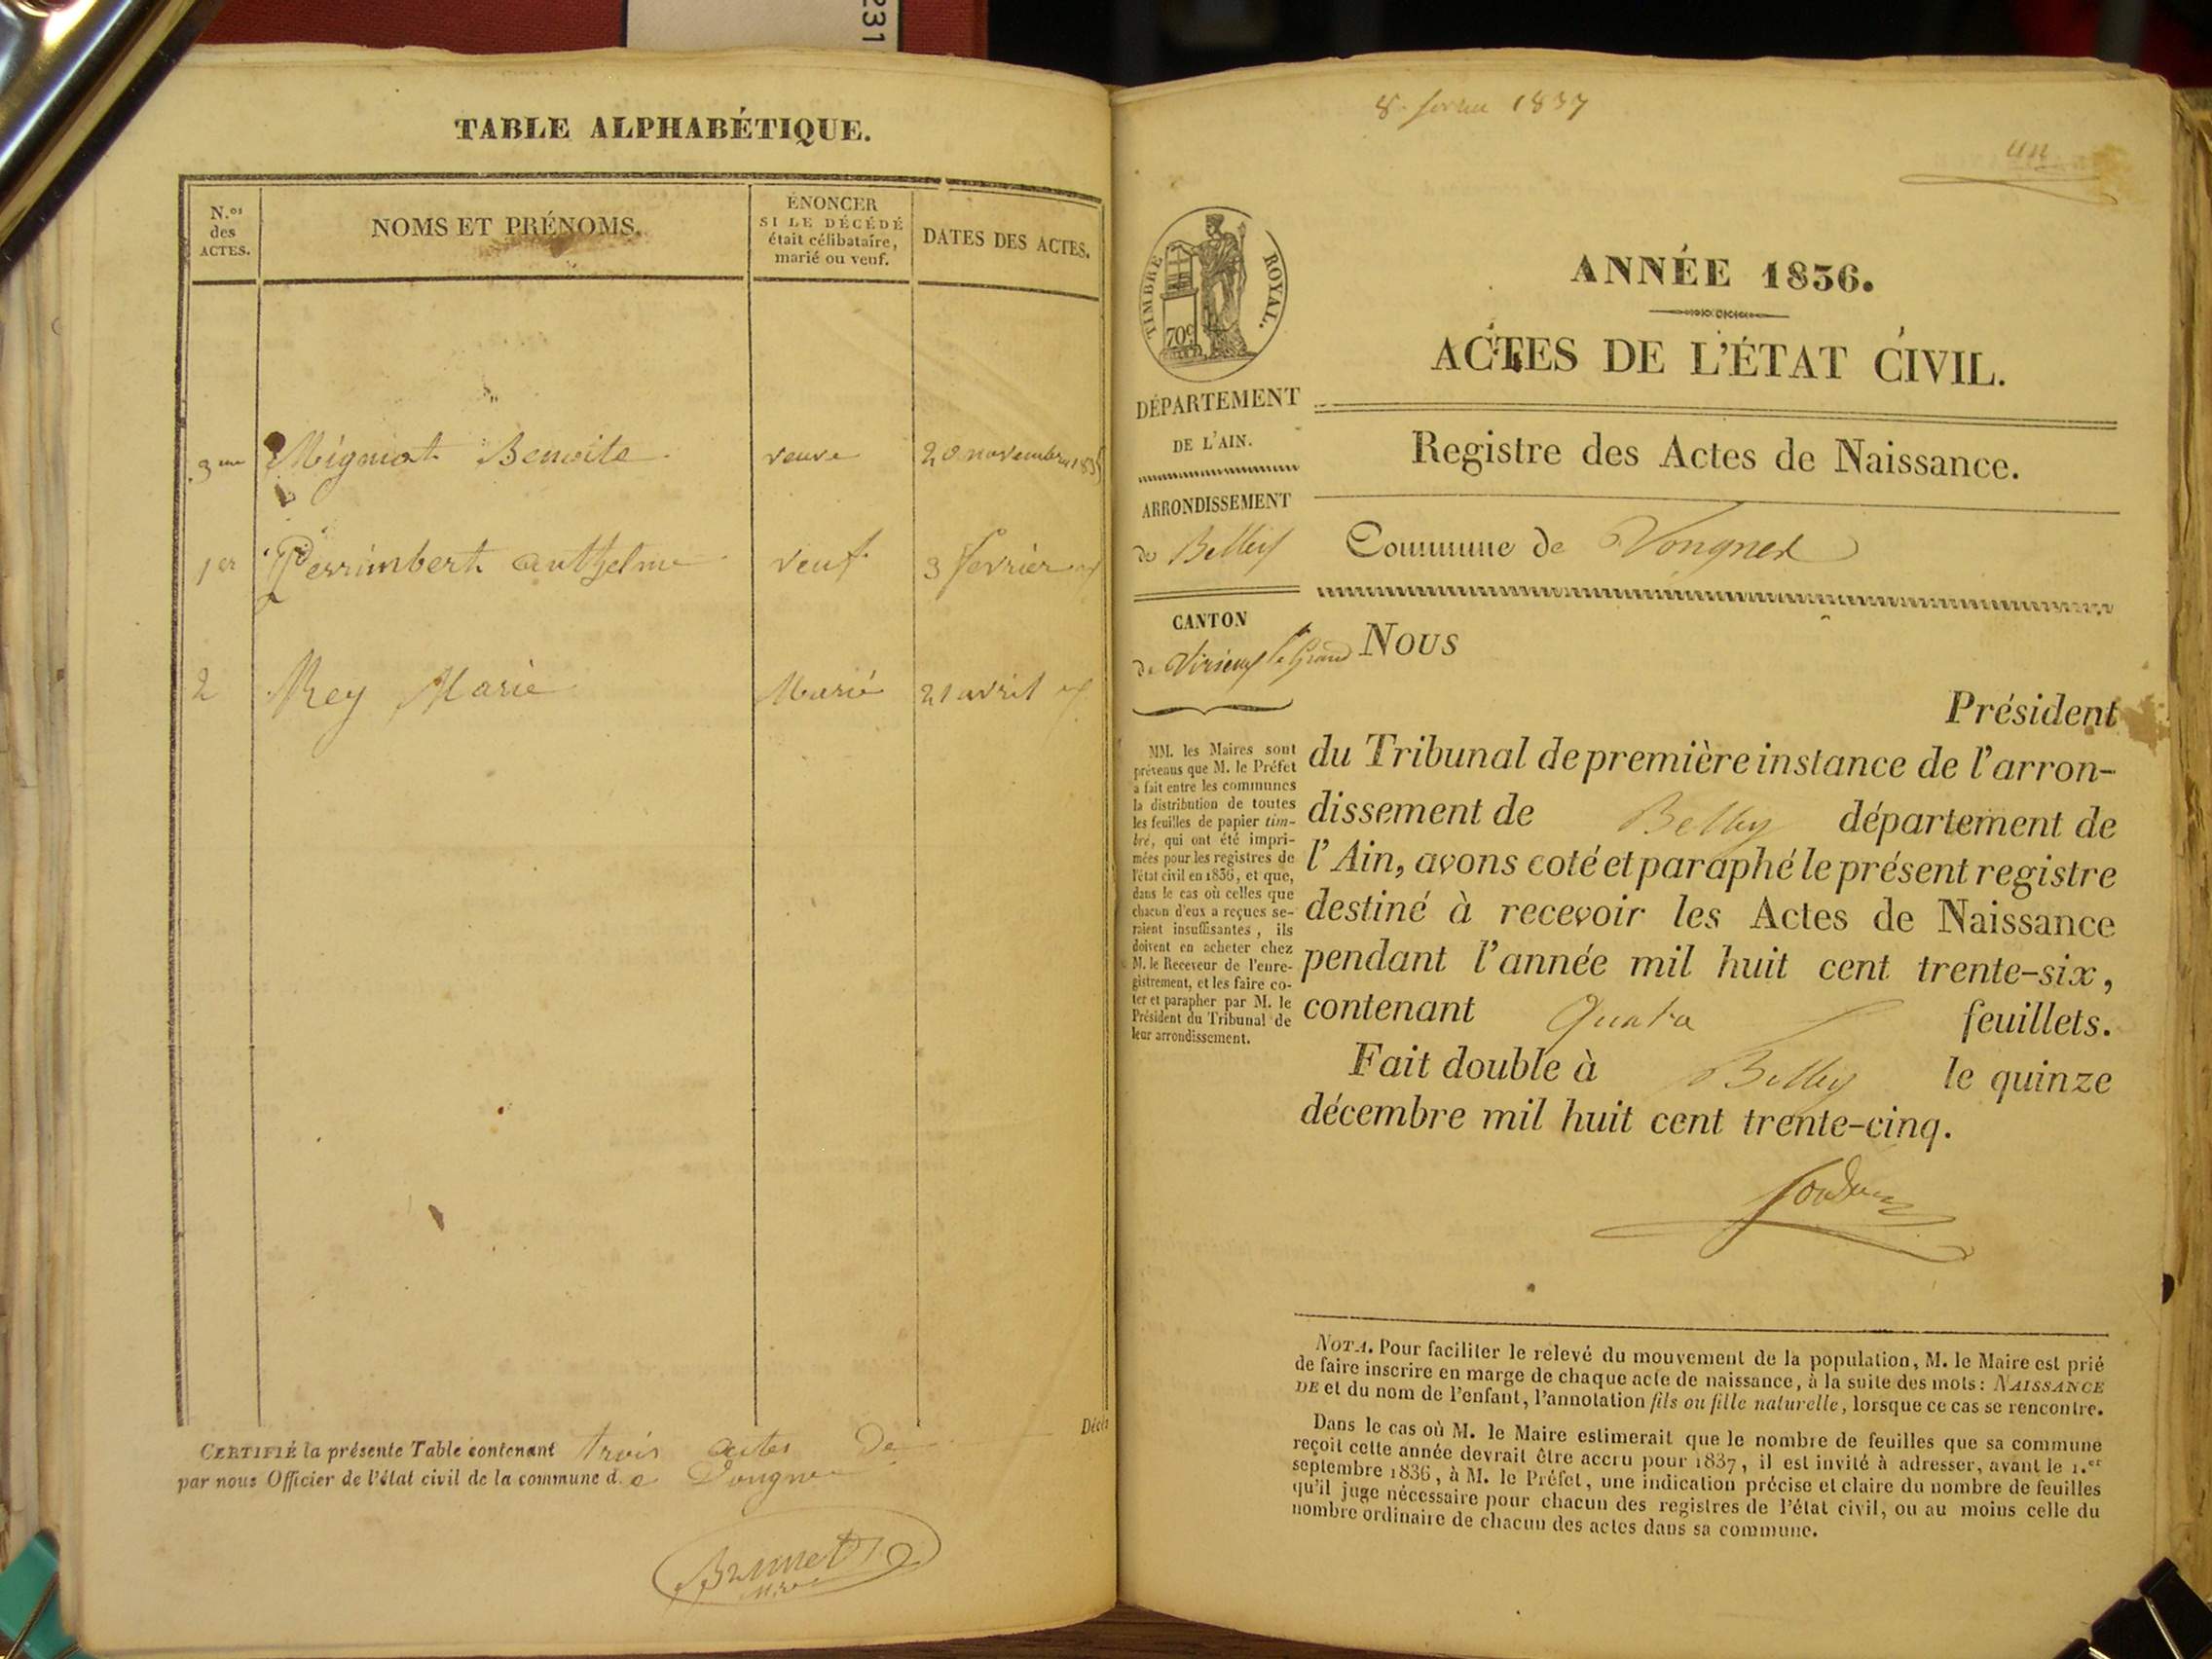 231
TABLE ALPHABÉTIQUE.
N.os des ACTES.
NOMS ET PRÉNOMS.
ÉNONCER
SI LE DÉCÉDÉ
était célibataire,
marié ou veuf.
DATES DES ACTES.
3me Migniot Benoite veuve 20 novembre 1835
1er Perrimbert anthelme veuf 3 fevrier
2 Rey Marie Marié 21 avril
CERTIFIÉ la présente Table contenant trois actes De
par nous Officier de l'état civil de la commune de Vongne
Brunet
Décès
8 fevrier 1837
un
TIMBRE ROYAL.
70c
DÉPARTEMENT
DE L'AIN.
ARRONDISSEMENT
de Belley
CANTON
de Virieux le Grand
MM. les Maires sont
prévenus que M. le Préfet
a fait entre les communes
la distribution de toutes
les feuilles de papier tim-
bré, qui ont été impri-
mées pour les registres de
l'état civil en 1836, et que,
dans le cas où celles que
chacun d'eux a reçues se-
raient insuffisantes, ils
doivent en acheter chez
M. le Receveur de l'enre-
gistrement, et les faire co-
ter et parapher par M. le
Président du Tribunal de
leur arrondissement.
ANNÉE 1836.
ACTES DE L'ÉTAT CIVIL.
Registre des Actes de Naissance.
Commune de Vongnes
Nous
Président
du Tribunal de première instance de l'arron-
dissement de Belley département de
l'Ain, avons coté et paraphé le présent registre
destiné à recevoir les Actes de Naissance
pendant l'année mil huit cent trente-six,
contenant Quatre feuillets.
Fait double à Belley le quinze
décembre mil huit cent trente-cinq.
NOTA. Pour faciliter le relevé du mouvement de la population, M. le Maire est prié
de faire inscrire en marge de chaque acte de naissance, à la suite des mots: NAISSANCE
DE et du nom de l'enfant, l'annotation fils ou fille naturelle, lorsque ce cas se rencontre.
Dans le cas où M. le Maire estimerait que le nombre de feuilles que sa commune
reçoit cette année devrait être accru pour 1837, il est invité à adresser, avant le 1.er
septembre 1836, à M. le Préfet, une indication précise et claire du nombre de feuilles
qu'il juge nécessaire pour chacun des registres de l'état civil, ou au moins celle du
nombre ordinaire de chacun des actes dans sa commune.